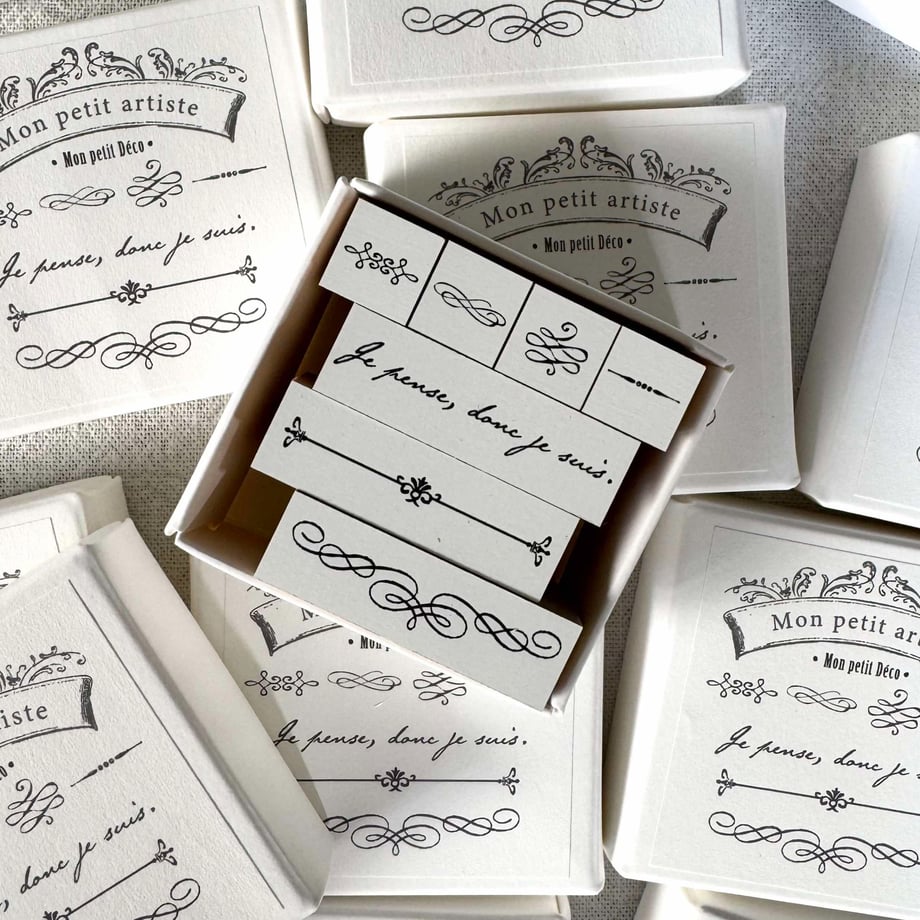 Mon petit artiste
• Mon petit Déco •
Je pense, donc je suis.
Mon petit artiste
• Mon petit Déco •
s.
Je pense, donc je suis.
iste
co •
donc je suis.
M
• Mon p
Je pense, donc je suis.
Mon petit ar
• Mon petit Déco •
Je pense, donc je s